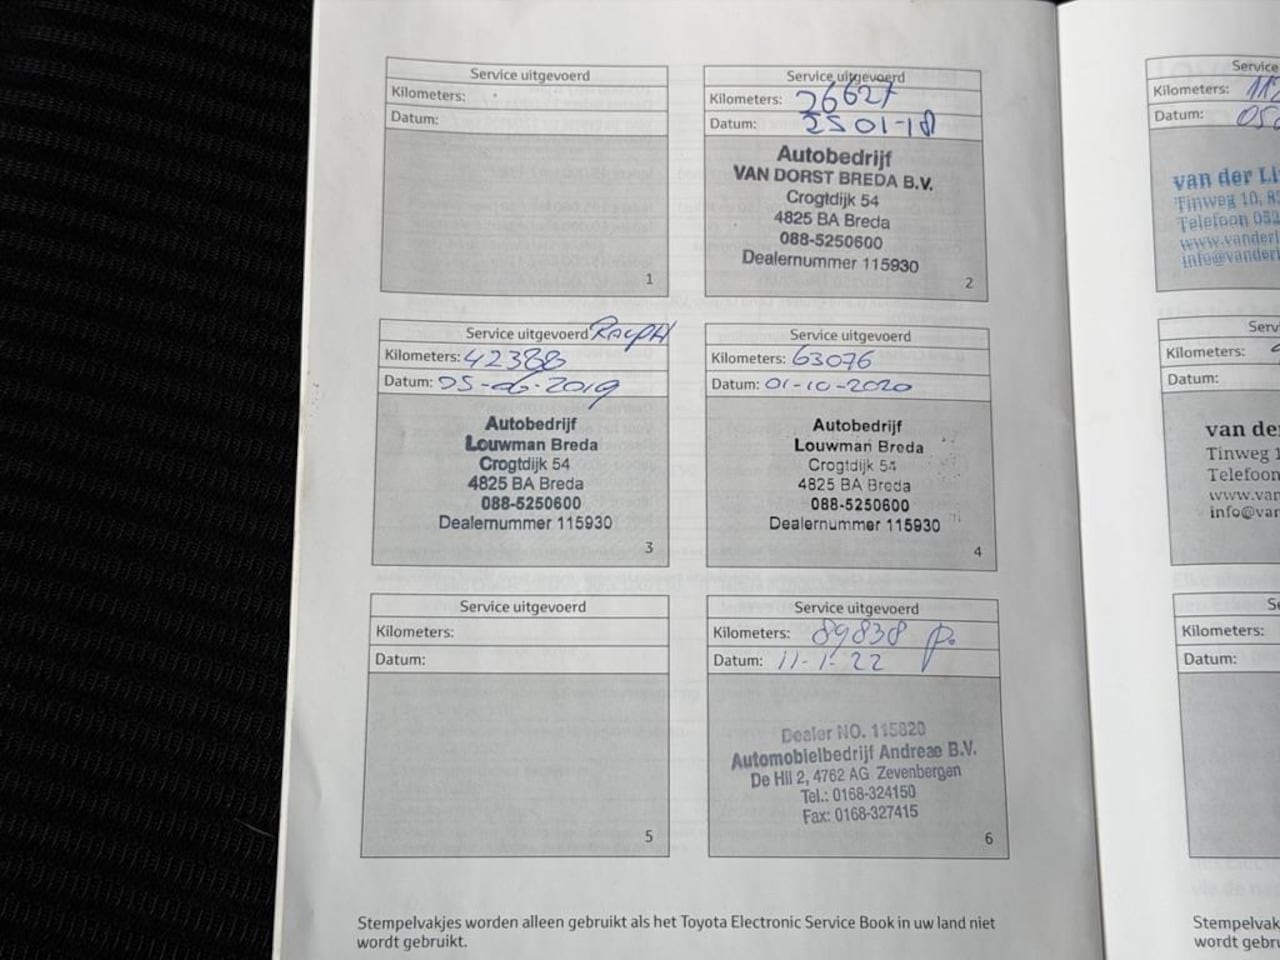 Service uitgevoerd
Kilometers:
Datum:
1
Service uitgevoerd
Kilometers: 26627
Datum: 25 01-18
Autobedrijf
VAN DORST BREDA B.V.
Crogtdijk 54
4825 BA Breda
088-5250600
Dealernummer 115930
2
Service uitgevoerd Ralph
Kilometers: 42388
Datum: 05-06-2019
Autobedrijf
Louwman Breda
Crogtdijk 54
4825 BA Breda
088-5250600
Dealernummer 115930
3
Service uitgevoerd
Kilometers: 63076
Datum: 01-10-2020
Autobedrijf
Louwman Breda
Crogtdijk 54
4825 BA Breda
088-5250600
Dealernummer 115930
4
Service uitgevoerd
Kilometers:
Datum:
5
Service uitgevoerd
Kilometers: 89838 p.
Datum: 11-1-22
Dealer NO. 115820
Automobielbedrijf Andreae B.V.
De Hil 2, 4762 AG Zevenbergen
Tel.: 0168-324150
Fax: 0168-327415
6
Stempelvakjes worden alleen gebruikt als het Toyota Electronic Service Book in uw land niet
wordt gebruikt.
Service
Kilometers:
Datum:
van der
Tinweg 10,
Telefoon
Kilometers:
Datum:
Tinweg
Telefoon
Kilometers:
Datum:
wordt